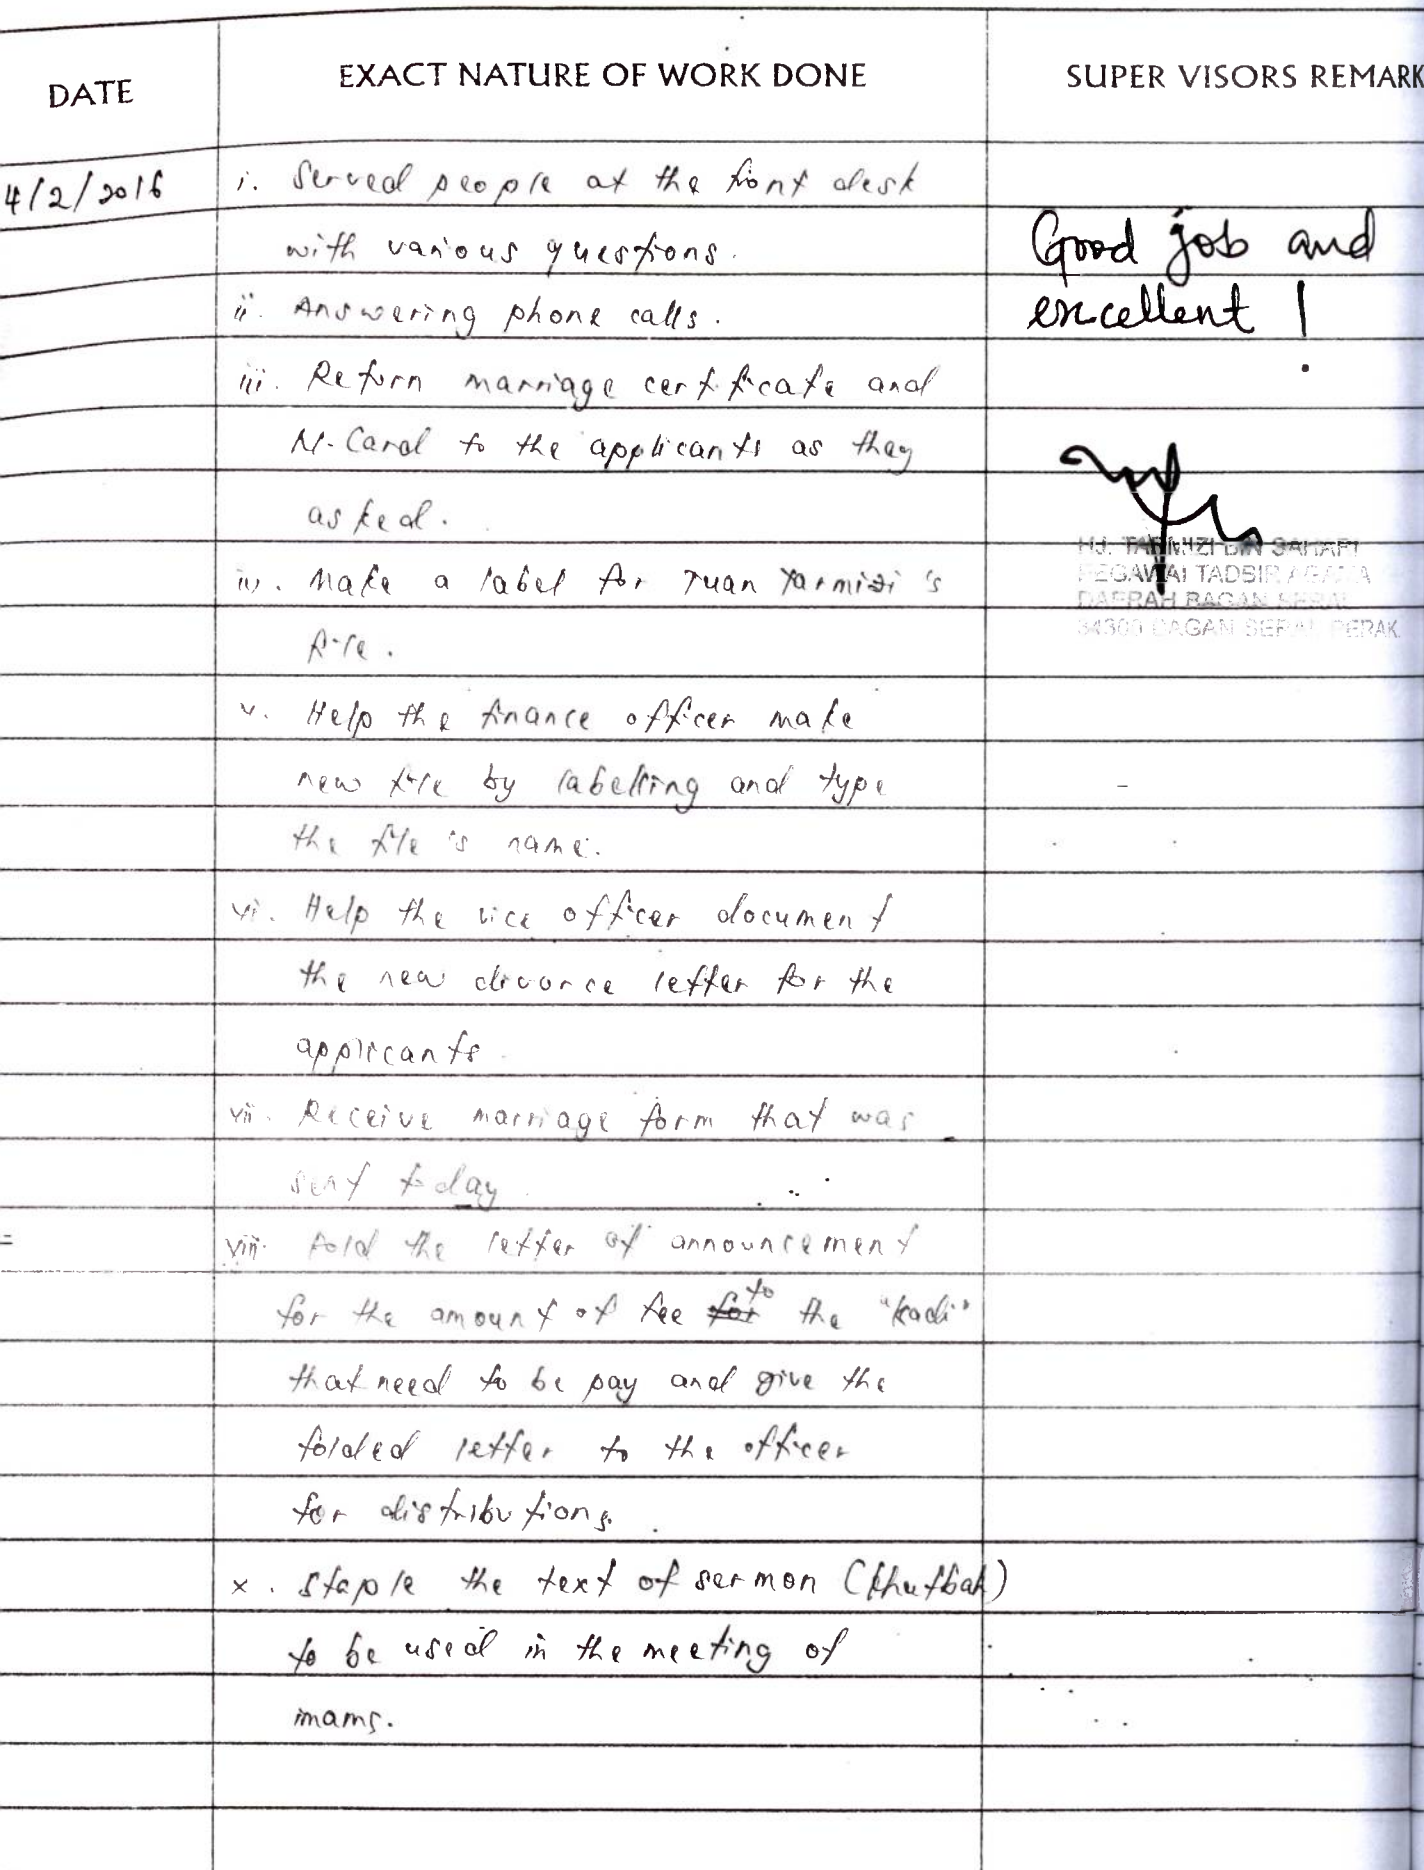 DATE
EXACT NATURE OF WORK DONE
SUPER VISORS REMARK
4/2/2016
i. Served people at the front desk
with various questions.
ii. Answering phone calls.
iii. Return marriage certificate and
M-Card to the applicants as they
asked.
iv. Make a label for Tuan Tarmizi's
file.
v. Help the finance officer make
new file by labelling and type
the file's name.
vi. Help the vice officer document
the new divorce letter for the
applicants.
vii. Receive marriage form that was
sent today.
viii. Fold the letter of announcement
for the amount of fee for to the "kadi"
that need to be pay and give the
folded letter to the officer
for distributions.
x. Staple the text of sermon (khutbah)
to be used in the meeting of
imams.
Good job and
excellent!
HJ. TARMIZI BIN SAHARI
PEGAWAI TADBIR AGAMA
DAERAH BAGAN SERAI
34300 BAGAN SERAI, PERAK.